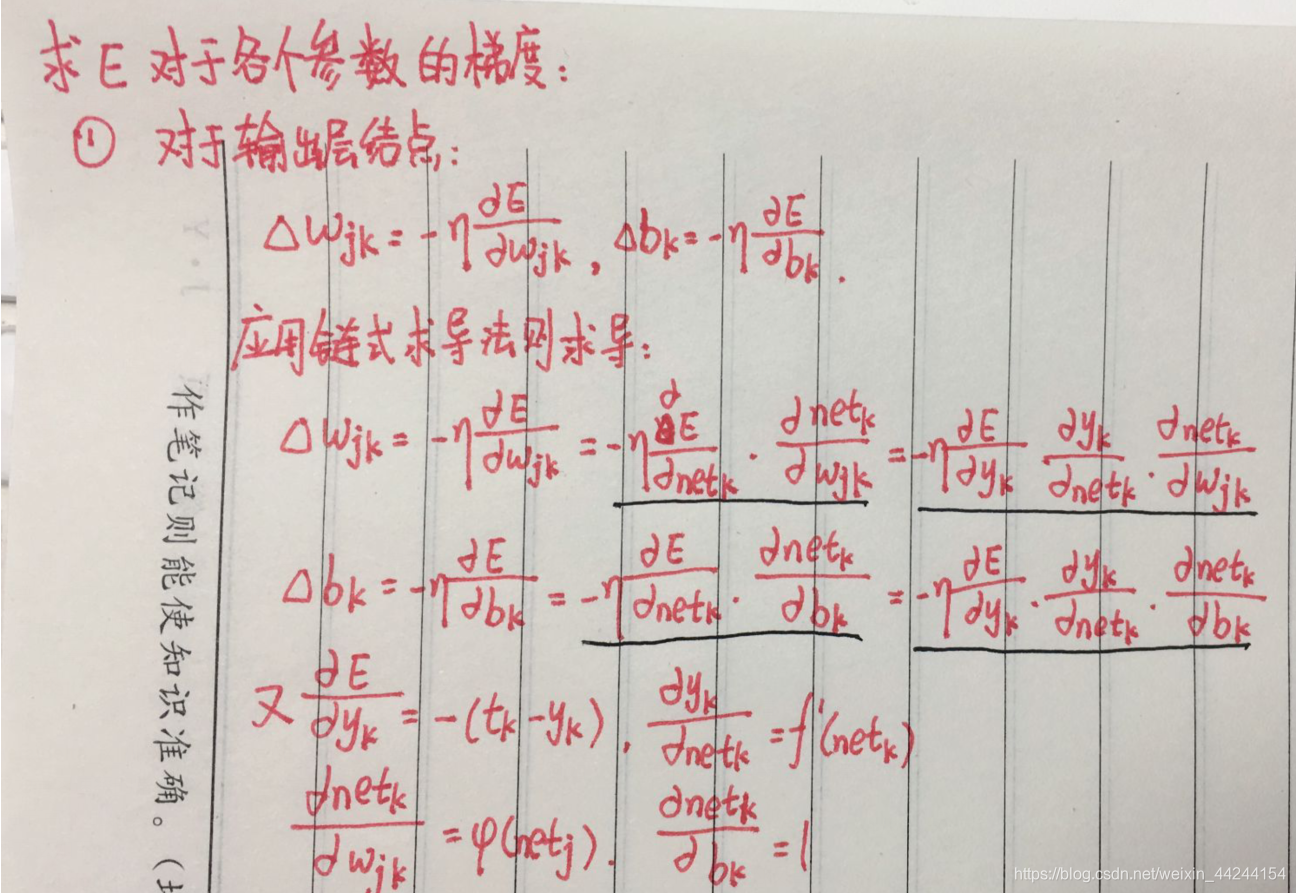 求E对于各个参数的梯度:
① 对于输出层结点:
Δw_jk = -η ∂E/∂w_jk , Δb_k = -η ∂E/∂b_k .
应用链式求导法则求导:
Δw_jk = -η ∂E/∂w_jk = -η ∂E/∂net_k · ∂net_k/∂w_jk = -η ∂E/∂y_k ∂y_k/∂net_k · ∂net_k/∂w_jk
Δb_k = -η ∂E/∂b_k = -η ∂E/∂net_k · ∂net_k/∂b_k = -η ∂E/∂y_k · ∂y_k/∂net_k · ∂net_k/∂b_k
又 ∂E/∂y_k = -(t_k - y_k) . ∂y_k/∂net_k = f'(net_k)
∂net_k/∂w_jk = φ(net_j) . ∂net_k/∂b_k = 1
作笔记则能使知识准确。(
https://blog.csdn.net/weixin_44244154